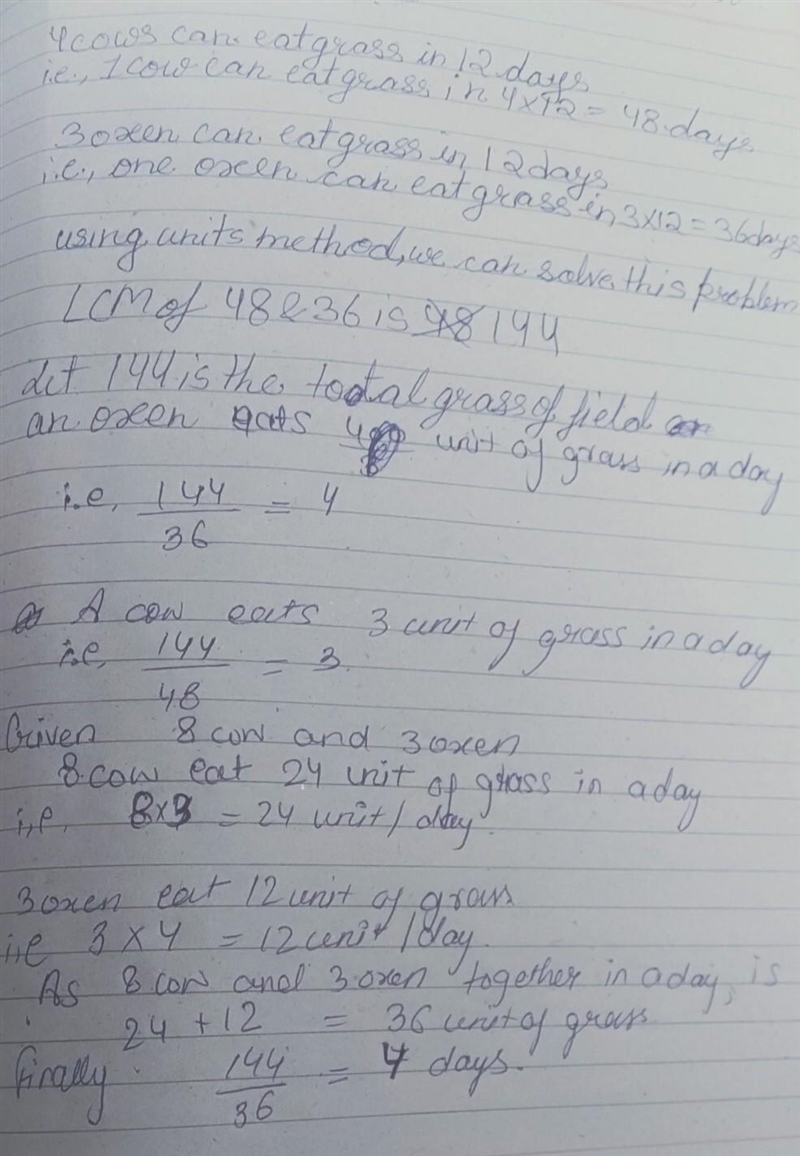 4 cows can eat grass in 12 days
i.e., 1 cow can eat grass in 4×12 = 48 days
3 oxen can eat grass in 12 days
i.e., one oxen can eat grass in 3×12 = 36 days
using units method, we can solve this problem
LCM of 48 & 36 is 144
Let 144 is the total grass of field
an oxen eats 4 unit of grass in a day
i.e, 144/36 = 4
A cow eats 3 unit of grass in a day
i.e, 144/48 = 3
Given 8 cow and 3 oxen
8 cow eat 24 unit of grass in a day
i,e, 8×3 = 24 unit/day
3 oxen eat 12 unit of grass
i,e 3×4 = 12 unit/day.
As 8 cow and 3 oxen together in a day, is
24 + 12 = 36 unit of grass
Finally 144/36 = 4 days.